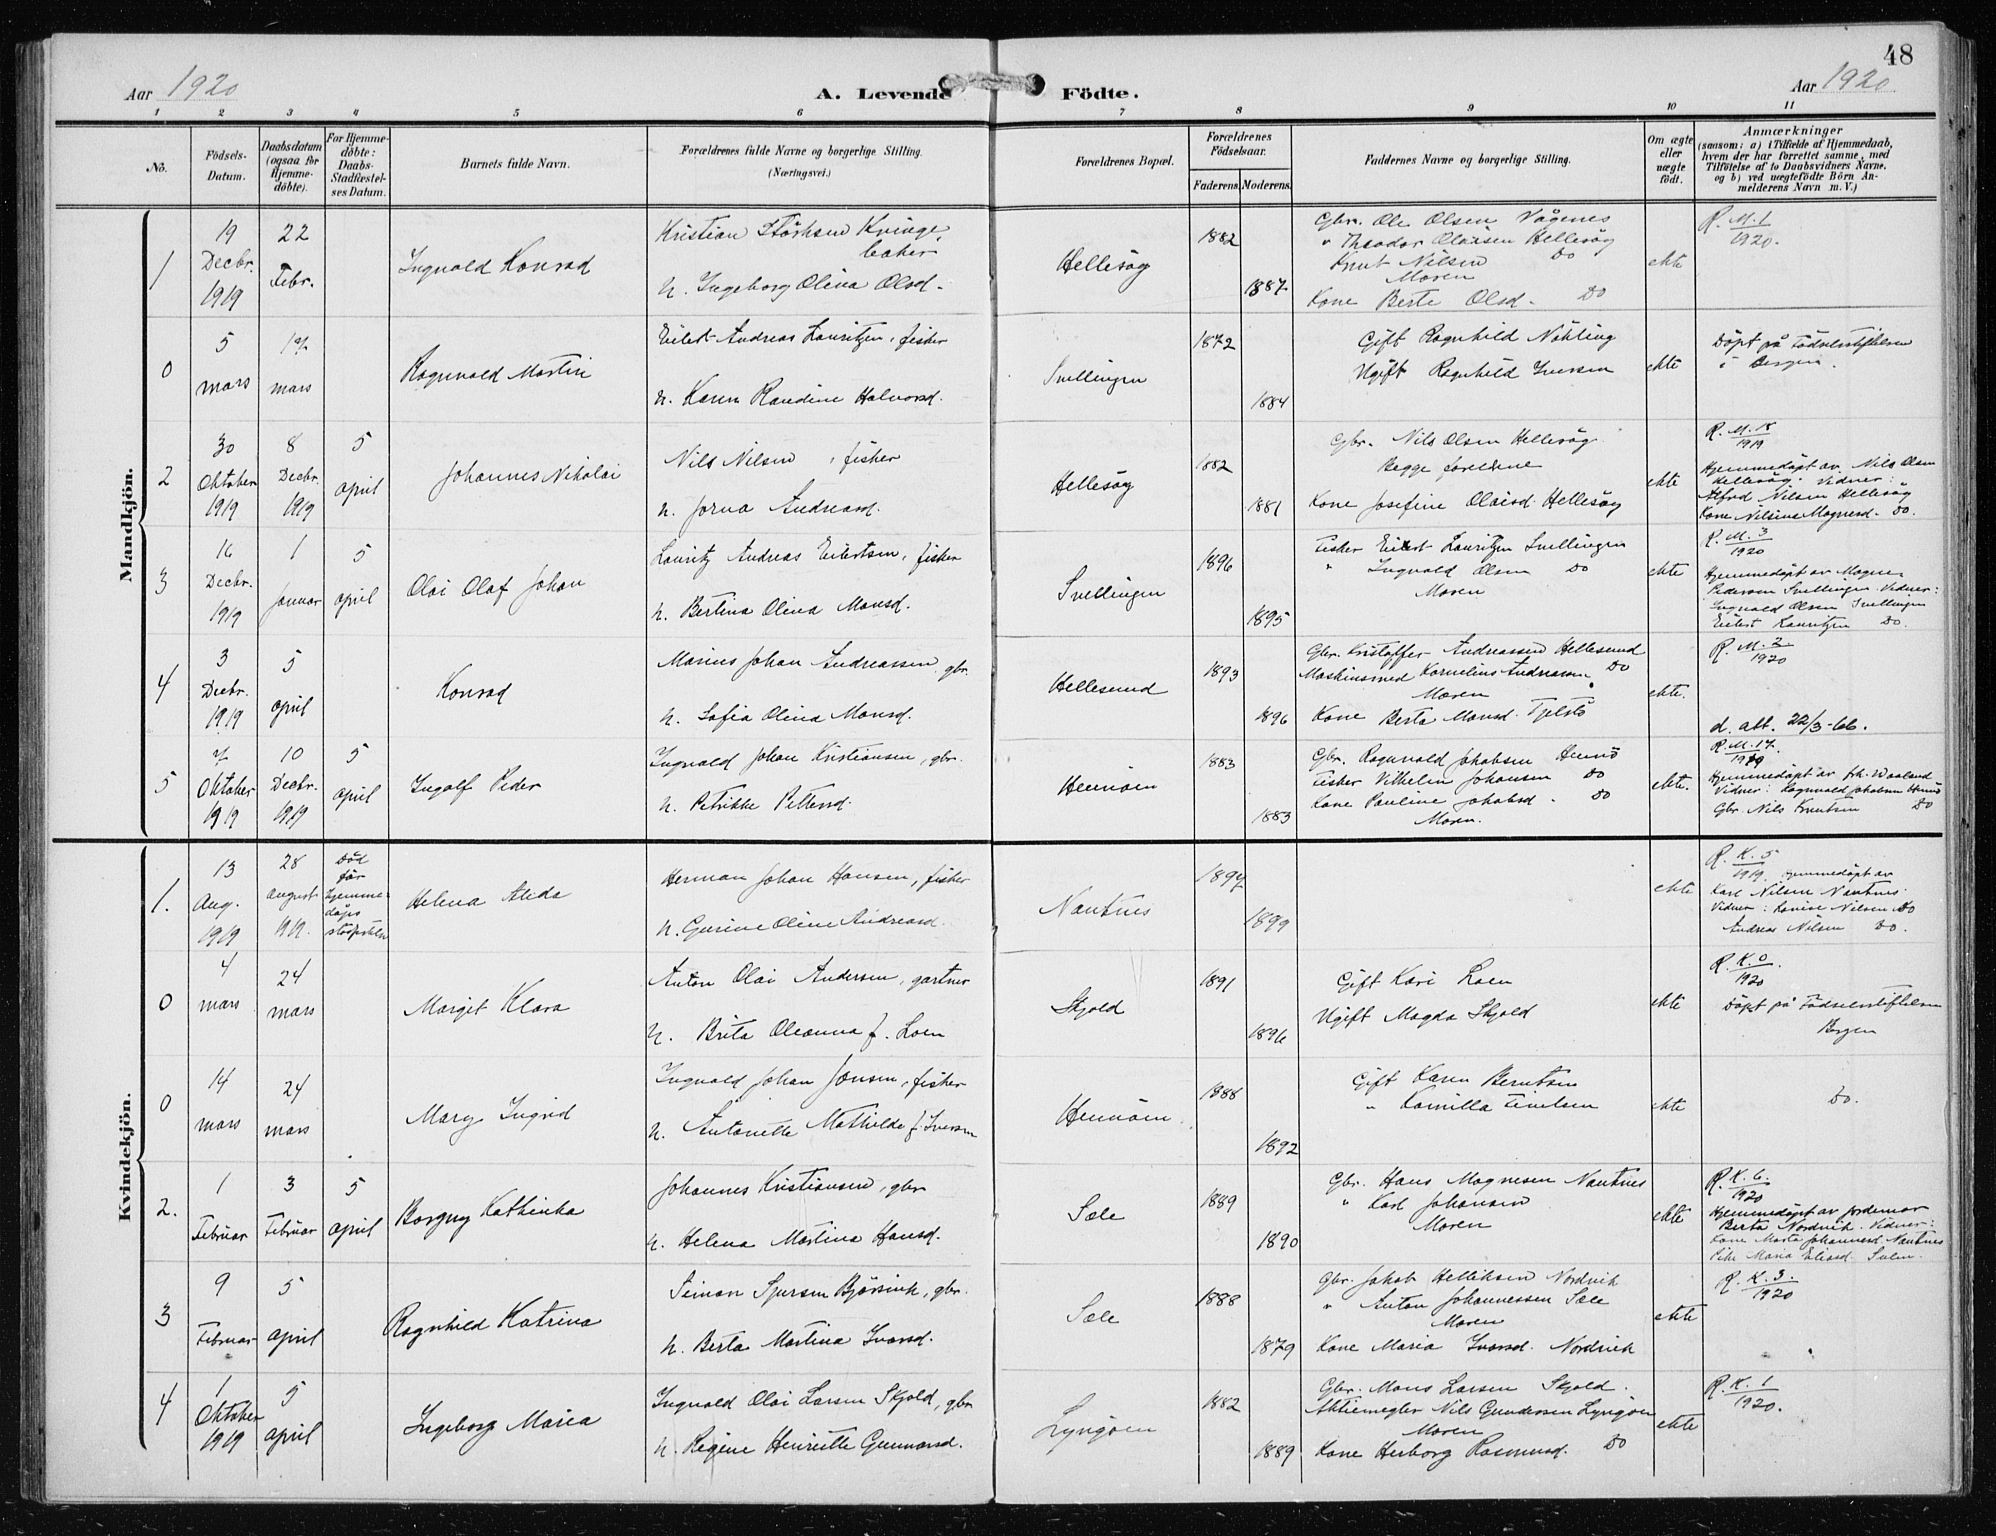 48
Aar 1920
A. Levende Födte.
Aar 1920
1 2 3 4 5 6 7 8 9 10 11
No.
Födsels-Datum.
Daabsdatum (ogsaa for Hjemme-döbte).
For Hjemme-döbte: Daabs-Stadfæstel-ses Datum.
Barnets fulde Navn.
Forældrenes fulde Navne og borgerlige Stilling.
(Næringsvei.)
Forældrenes Bopæl.
Forældrenes Födselsaar.
Faderens. Moderens.
Faddernes Navne og borgerlige Stilling.
Om ægte eller uægte födt.
Anmærkninger
(saasom: a) i Tilfælde af Hjemmedaab, hvem der har forrettet samme, med Tilföielse af to Daabsvidners Navne, og b) ved uægtefödte Börn An-melderens Navn m. V.)
Mandkjön.
1
19 Decbr. 1919
22 Febr.
Ingvald Konrad
Kristian Störksen Kvinge, baker
h. Ingeborg Olina Olsd.
Hellesöy
1882
1887
Gbr. Ole Olsen Vågenes
" Theodor Olaisen Hellesöy
Knut Nilsen Do
Moren
Kone Berte Olsd. Do
ekte
R. M. 1
1920.
0
5 mars
17 mars
Ragnvald Martin
Eilert Andreas Lauritzen, fisker
h. Karen Randine Halvorsd.
Svellingen
1872
1884
Gift Ragnhild Nökling
Ugift Ragnhild Iversen
ekte
Döpt på Födselsstiftelsen
i Bergen.
2
30 Oktober 1919
8 Decbr. 1919
5 april
Johannes Nikolai
Nils Nilsen, fisker
h. Jorna Andreasd.
Hellesöy
1882
1881
Gbr. Nils Olsen Hellesöy
Begge foreldrene
Kone Josefine Olaisd. Hellesöy
ekte
R. M. 18
1919
Hjemmedöpt av Nils Olsen
Hellesöy. Vidner:
Alfred Nilsen Hellesöy
Kone Nilsine Magnesd. Do.
3
16 Decbr. 1919
1 januar
5 april
Olai Olaf Johan
Lauritz Andreas Eilertsen, fisker
h. Bertina Olina Monsd.
Svellingen
1896
1895
Fisker Eilert Lauritzen Svellingen
" Ingvald Olsen Do
Moren
ekte
R. M. 3
1920
Hjemmedöpt av Magne
Pedersen Svellingen. Vidner:
Ingvald Olsen Svellingen
Eilert Lauritzen Do.
4
3 Decbr. 1919
5 april
Konrad
Marius Johan Andreassen, gbr.
h. Sofia Olina Monsd.
Hellesund
1893
1896
Gbr. Kristoffer Andreassen Hellesund
Maskinsmed Kornelius Andreassen Do
Moren
Kone Berta Monsd. Tjelstö
ekte.
R. M. 2
1920
d. att. 22/3-66.
5
7 Oktober 1919
10 Decbr. 1919
5 april
Ingolf Peder
Ingvald Johan Kristiansen, gbr.
h. Petrikke Pettersd.
Hennöen
1883
1883
Gbr. Ragnvald Jakobsen Hennö
Fisker Vilhelm Johansen Do
Kone Pauline Jakobsd. Do
Moren.
ekte.
R. M. 17.
1919
Hjemmedöpt av frk. Waaland
Vidner: Ragnvald Jakobsen Hennö
Gbr. Nils Knutsen Do
Kvindekjön.
1.
13 Aug. 1919
28 august 1919.
Död för hjemme-
Helena Alida
Herman Johan Hansen, fisker
h. Gurine Oline Andreasd.
Nautnes
1897
1899
ekte
R. K. 5
1919. Hjemmedöpt av
Karl Nilsen Nautnes.
Vidner: Lovise Nilsen Do
Andreas Nilsen Do.
0
4 mars
24 mars
Margit Klara
Anton Olai Andersen, gartner
h. Brita Oleanna f. Loen
Skjold
1891
1896
Gift Kari Loen
Ugift Magda Skjold
ekte
R. K. 0
1920
Döpt på Födselsstiftelsen
Bergen
0
14 mars
24 mars
Mary Ingrid
Ingvald Johan Jensen, fisker
h. Antonette Mathilde f. Iversen
Hennöen
1888
1892
Gift Karen Berntsen
" Kamilla
ekte
Do.
2.
1 Februar
3 Februar
5 april
Borgny Kathinka
Johannes Kristiansen, gbr
h. Helena Martina Hansd.
Sæle
1889
1890
Gbr. Hans Magnesen Nautnes
" Karl Johansen
Moren
ekte
R. K. 6.
1920
Hjemmedöpt av jordemor
Berta Nordvik. Vidner:
Kone Marta Johannesd. Nautnes
Pike Maria Eliasd. Sulen.
3
9 Februar
5 april
Ragnhild Katrina
Simon Sjursen Björsvik, gbr.
h. Berta Martina Ivarsd.
Sæle
1888
1879
Gbr. Jakob Helliksen Nordvik
" Anton Johannessen Sæle
Moren
Kone Maria Ivarsd. Nordvik
ekte
R. K. 3.
1920
4
1 Oktober 1919
5 april
Ingeborg Maria
Ingvald Olai Larsen Skjold, gbr
h. Regine Henriette Gunnarsd.
Lyngöen
1882
1889
Gbr. Mons Larsen Skjold.
Aktiemegler Nils Gundersen Lyngöen
Moren
Kone Herborg Rasmusd. Do
ekte
R. K. 1
1920.